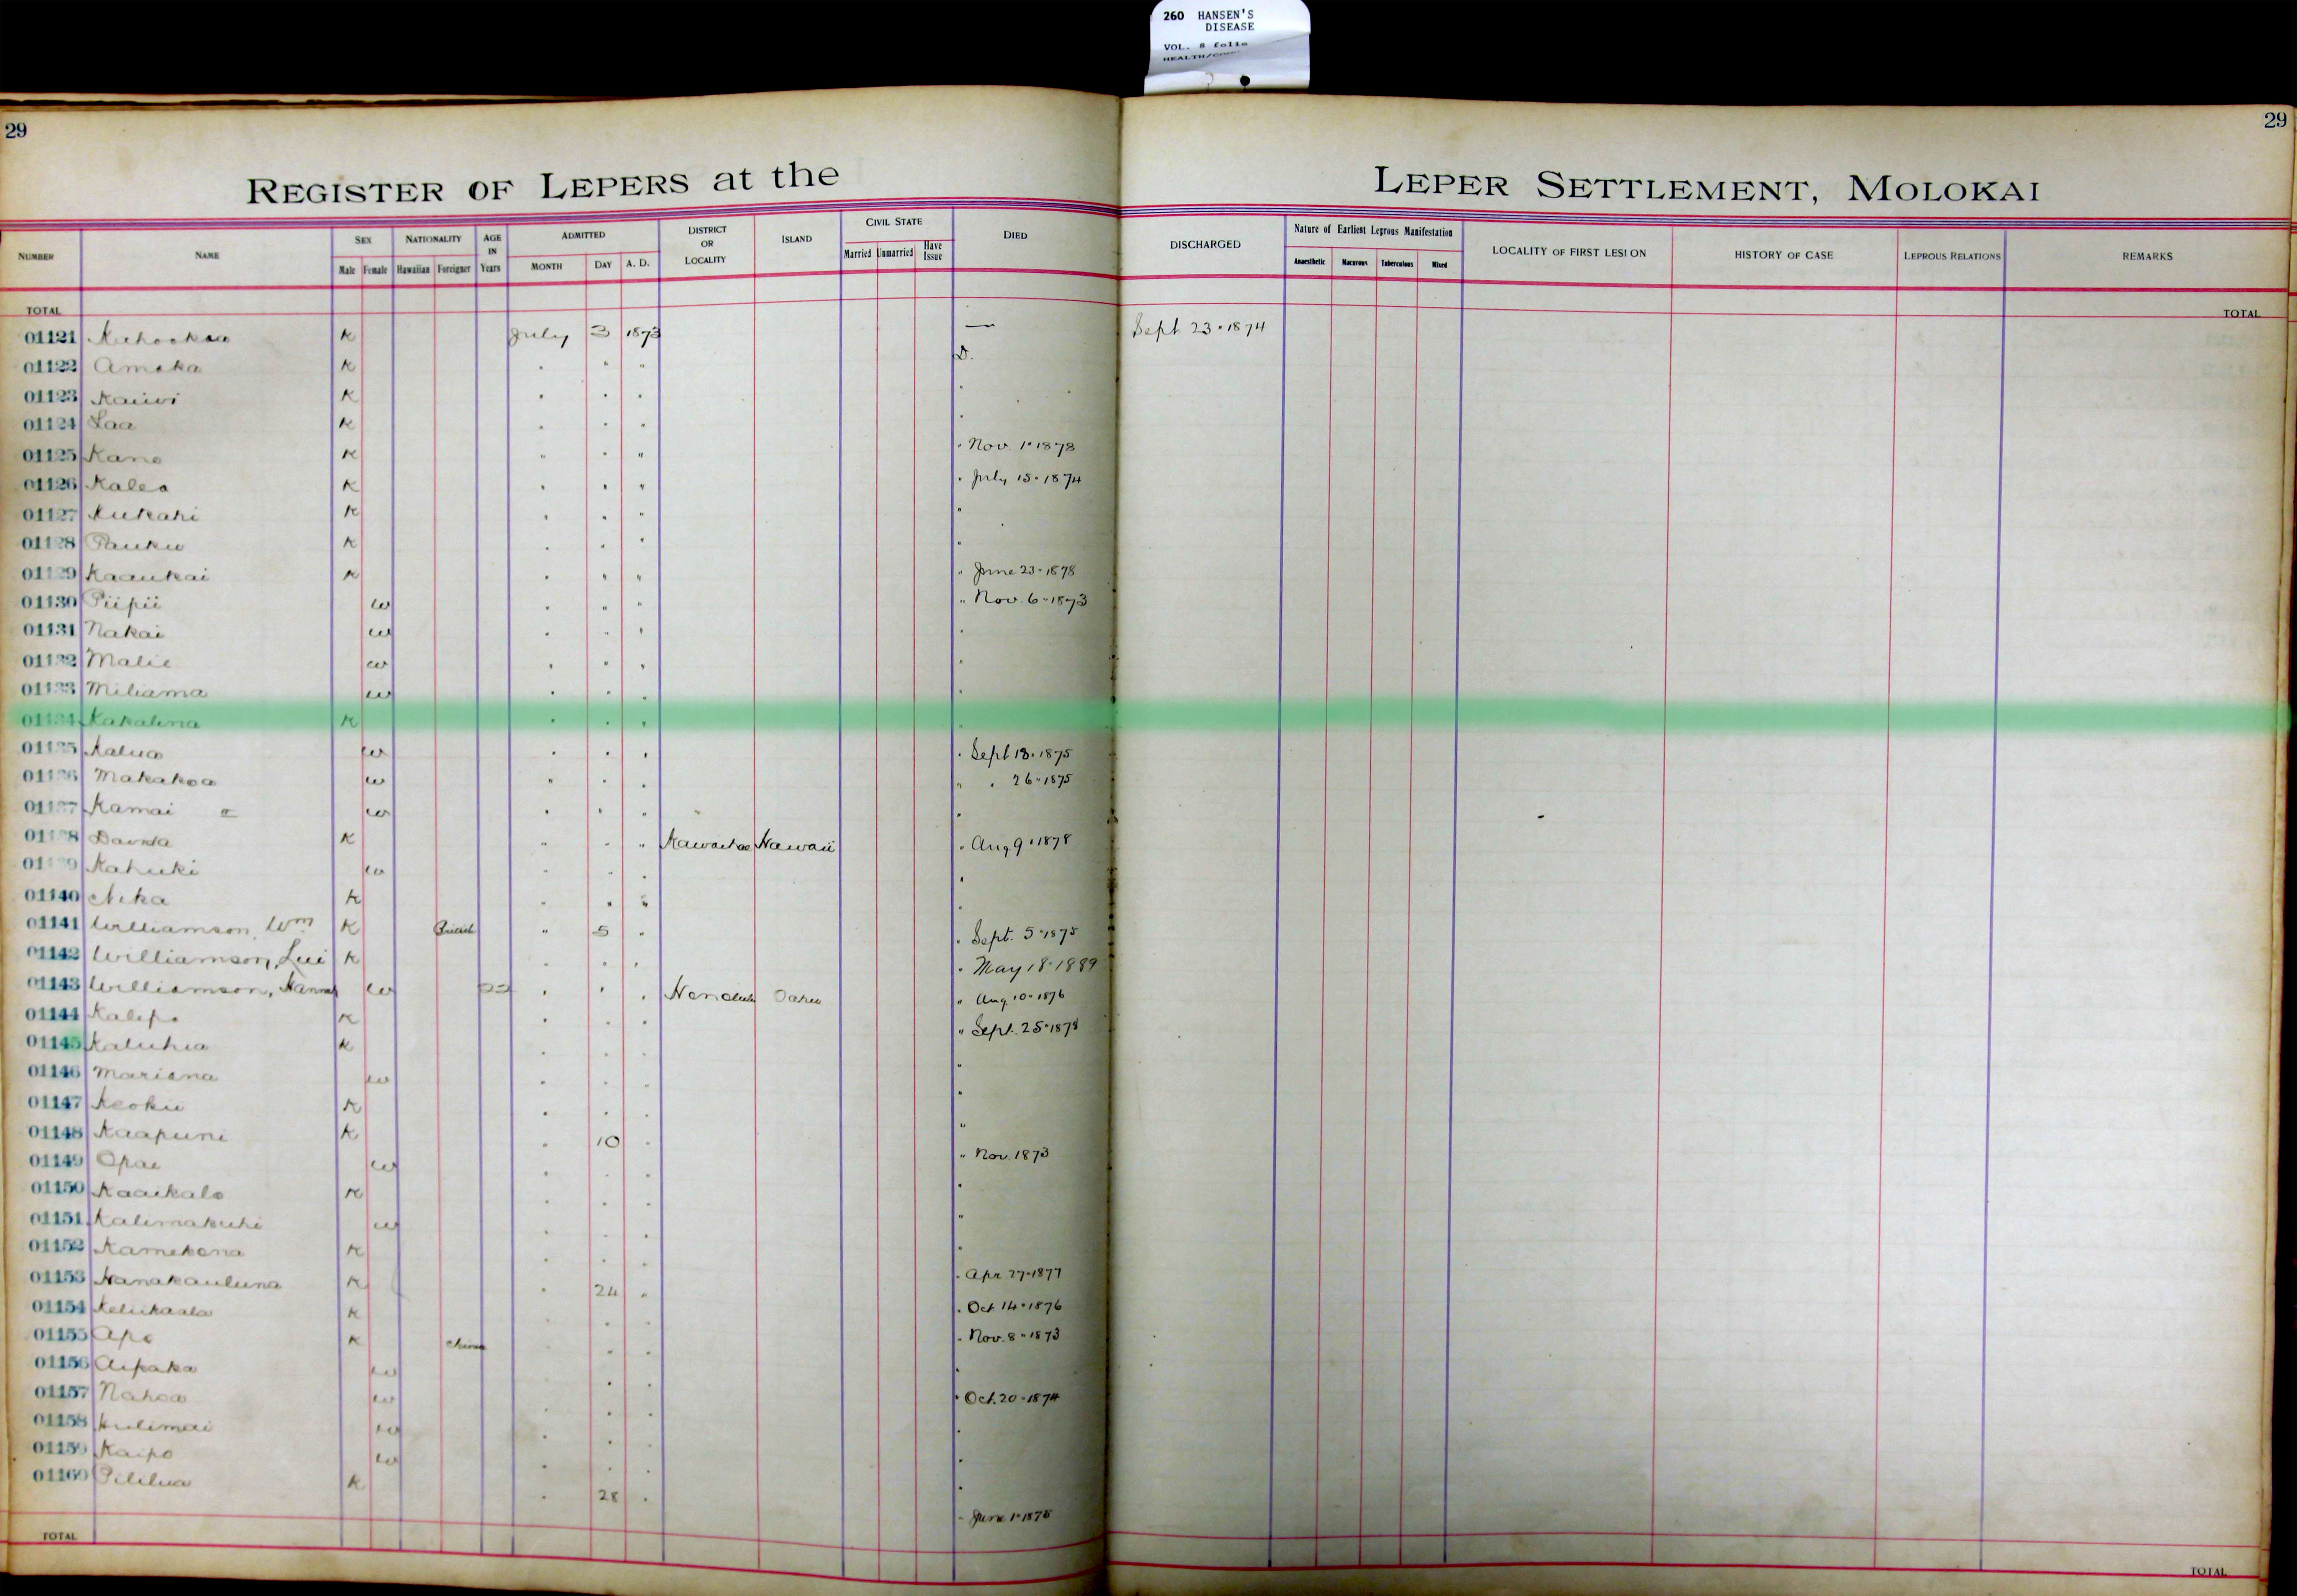 260 HANSEN'S
DISEASE
VOL. 8 folio
29
29
REGISTER OF LEPERS at the LEPER SETTLEMENT, MOLOKAI
NUMBER NAME SEX NATIONALITY AGE IN ADMITTED DISTRICT OR LOCALITY ISLAND CIVIL STATE DIED DISCHARGED Nature of Earliest Leprous Manifestation LOCALITY OF FIRST LESION HISTORY OF CASE LEPROUS RELATIONS REMARKS
Male Female Hawaiian Foreigner Years MONTH DAY A. D. Married Unmarried Have Issue Anaesthetic Macurous Tuberculous Mixed
TOTAL TOTAL
01121 K July 3 1873 — Sept 23 · 1874
01122 Amaka K " " " D.
01123 Kaiwi K " " " "
01124 Laa K " " " "
01125 Kane K " " " " Nov. 1 · 1878
01126 Kalea K " " " " July 15 · 1874
01127 Kukahi K " " " "
01128 Pauku K " " " "
01129 Kaaukai K " " " " June 23 · 1878
01130 Piipii W " " " " Nov. 6 · 1873
01131 Nakai W " " " "
01132 Malie W " " " "
01133 Miliama W " " " "
01134 Kakalina K " " " "
01135 Kalua W " " " " Sept 18 · 1875
01136 Makakoa W " " " " " 26 · 1875
01137 Kamai W " " " "
01138 K " " " Kawaihae Hawaii " Aug 9 · 1878
01139 Kahuki W " " " "
01140 Nika K " " " "
01141 Williamson, Wm K British " 5 " " Sept. 5 · 1875
01142 Williamson, Lui K " " " " May 18 · 1889
01143 Williamson, Hannah W " " " Honolulu Oahu " Aug. 10 · 1876
01144 Kalepo K " " " " Sept. 25 · 1878
01145 Kaluhia K " " " "
01146 Mariana W " " " "
01147 Keoku K " " " "
01148 Kaapuni K " 10 " "
01149 Opae W " " " " Nov. 1873
01150 Kaaikalo K " " " "
01151 Kalimakuhi W " " " "
01152 Kamekona K " " " "
01153 Nanakauluna K " 24 " " Apr 27 · 1877
01154 Keliikaala K " " " " Oct 14 · 1876
01155 Apo K China " " " " Nov. 8 · 1873
01156 Aipaka W " " " "
01157 Nahoa W " " " " Oct. 20 · 1874
01158 Kulimai W " " " "
01159 Kaipo W " " " "
01160 Pililua K " 28 " " June 1 · 1875
TOTAL TOTAL